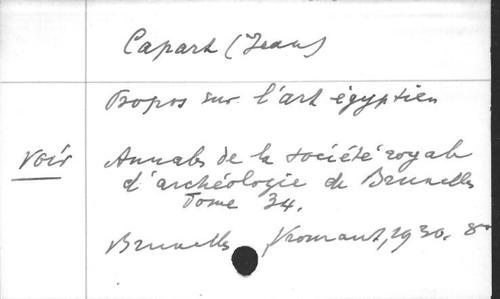 Capart (Jean)
Propos sur l'art égyptien
voir
Annales de la société royale
d'archéologie de Bruxelles
Tome 34.
Bruxelles, Vromant, 1930. 8º